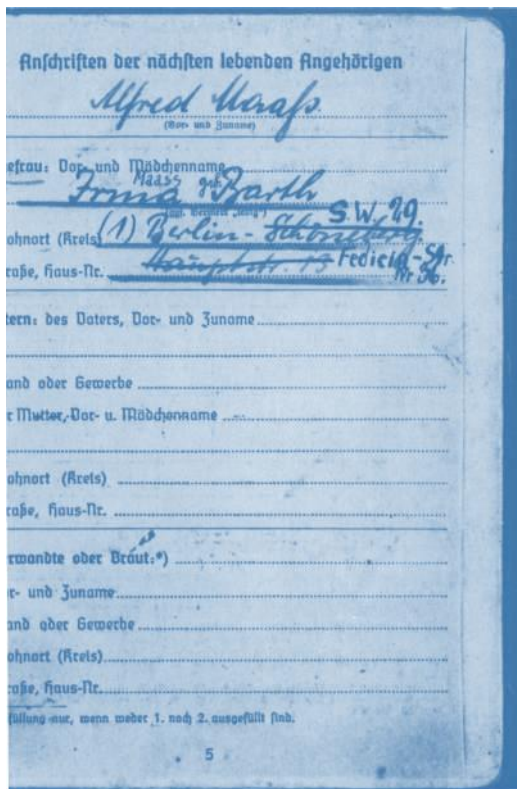 Anschriften der nächsten lebenden Angehörigen
Alfred Maaß.
(Vor- und Zuname)
efrau: Vor- und Mädchenname
Irma Maass geb. Barth
S.W. 29.
ohnort (Kreis) (1) Berlin-Schöneberg
raße, Haus-Nr. Hauptstr. 13 Fedicin-Str.
Nr 36.
tern: des Vaters, Vor- und Zuname
and oder Gewerbe
r Mutter, Vor- u. Mädchenname
ohnort (Kreis)
raße, Haus-Nr.
erwandte oder Braut:*)
r- und Zuname
and oder Gewerbe
ohnort (Kreis)
raße, Haus-Nr.
füllung nur, wenn weder 1. noch 2. ausgefüllt sind.
5